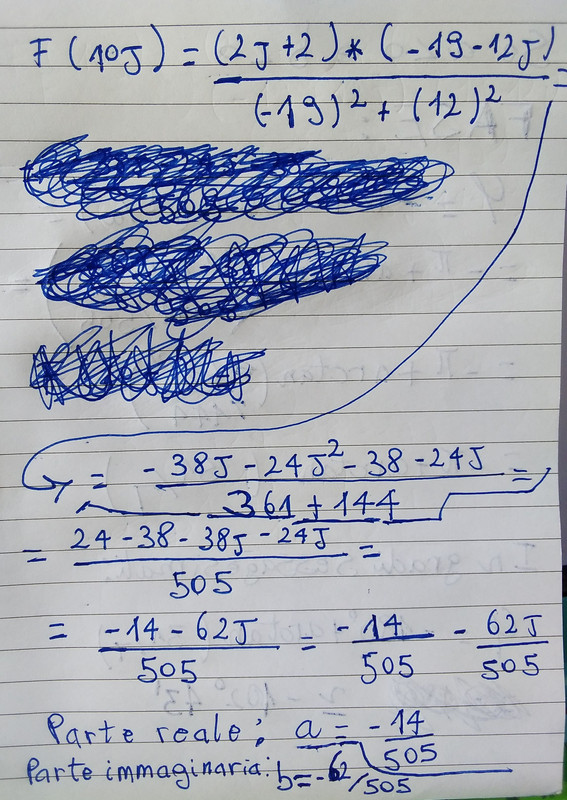 F(10J) = (2J+2)*(-19-12J) / (-19)² + (12)² =
= -38J-24J²-38-24J / 361+144 =
= 24-38-38J-24J / 505 =
= -14-62J / 505 = -14 / 505 - 62J / 505
Parte reale: a = -14 / 505
Parte immaginaria: b=-62/505